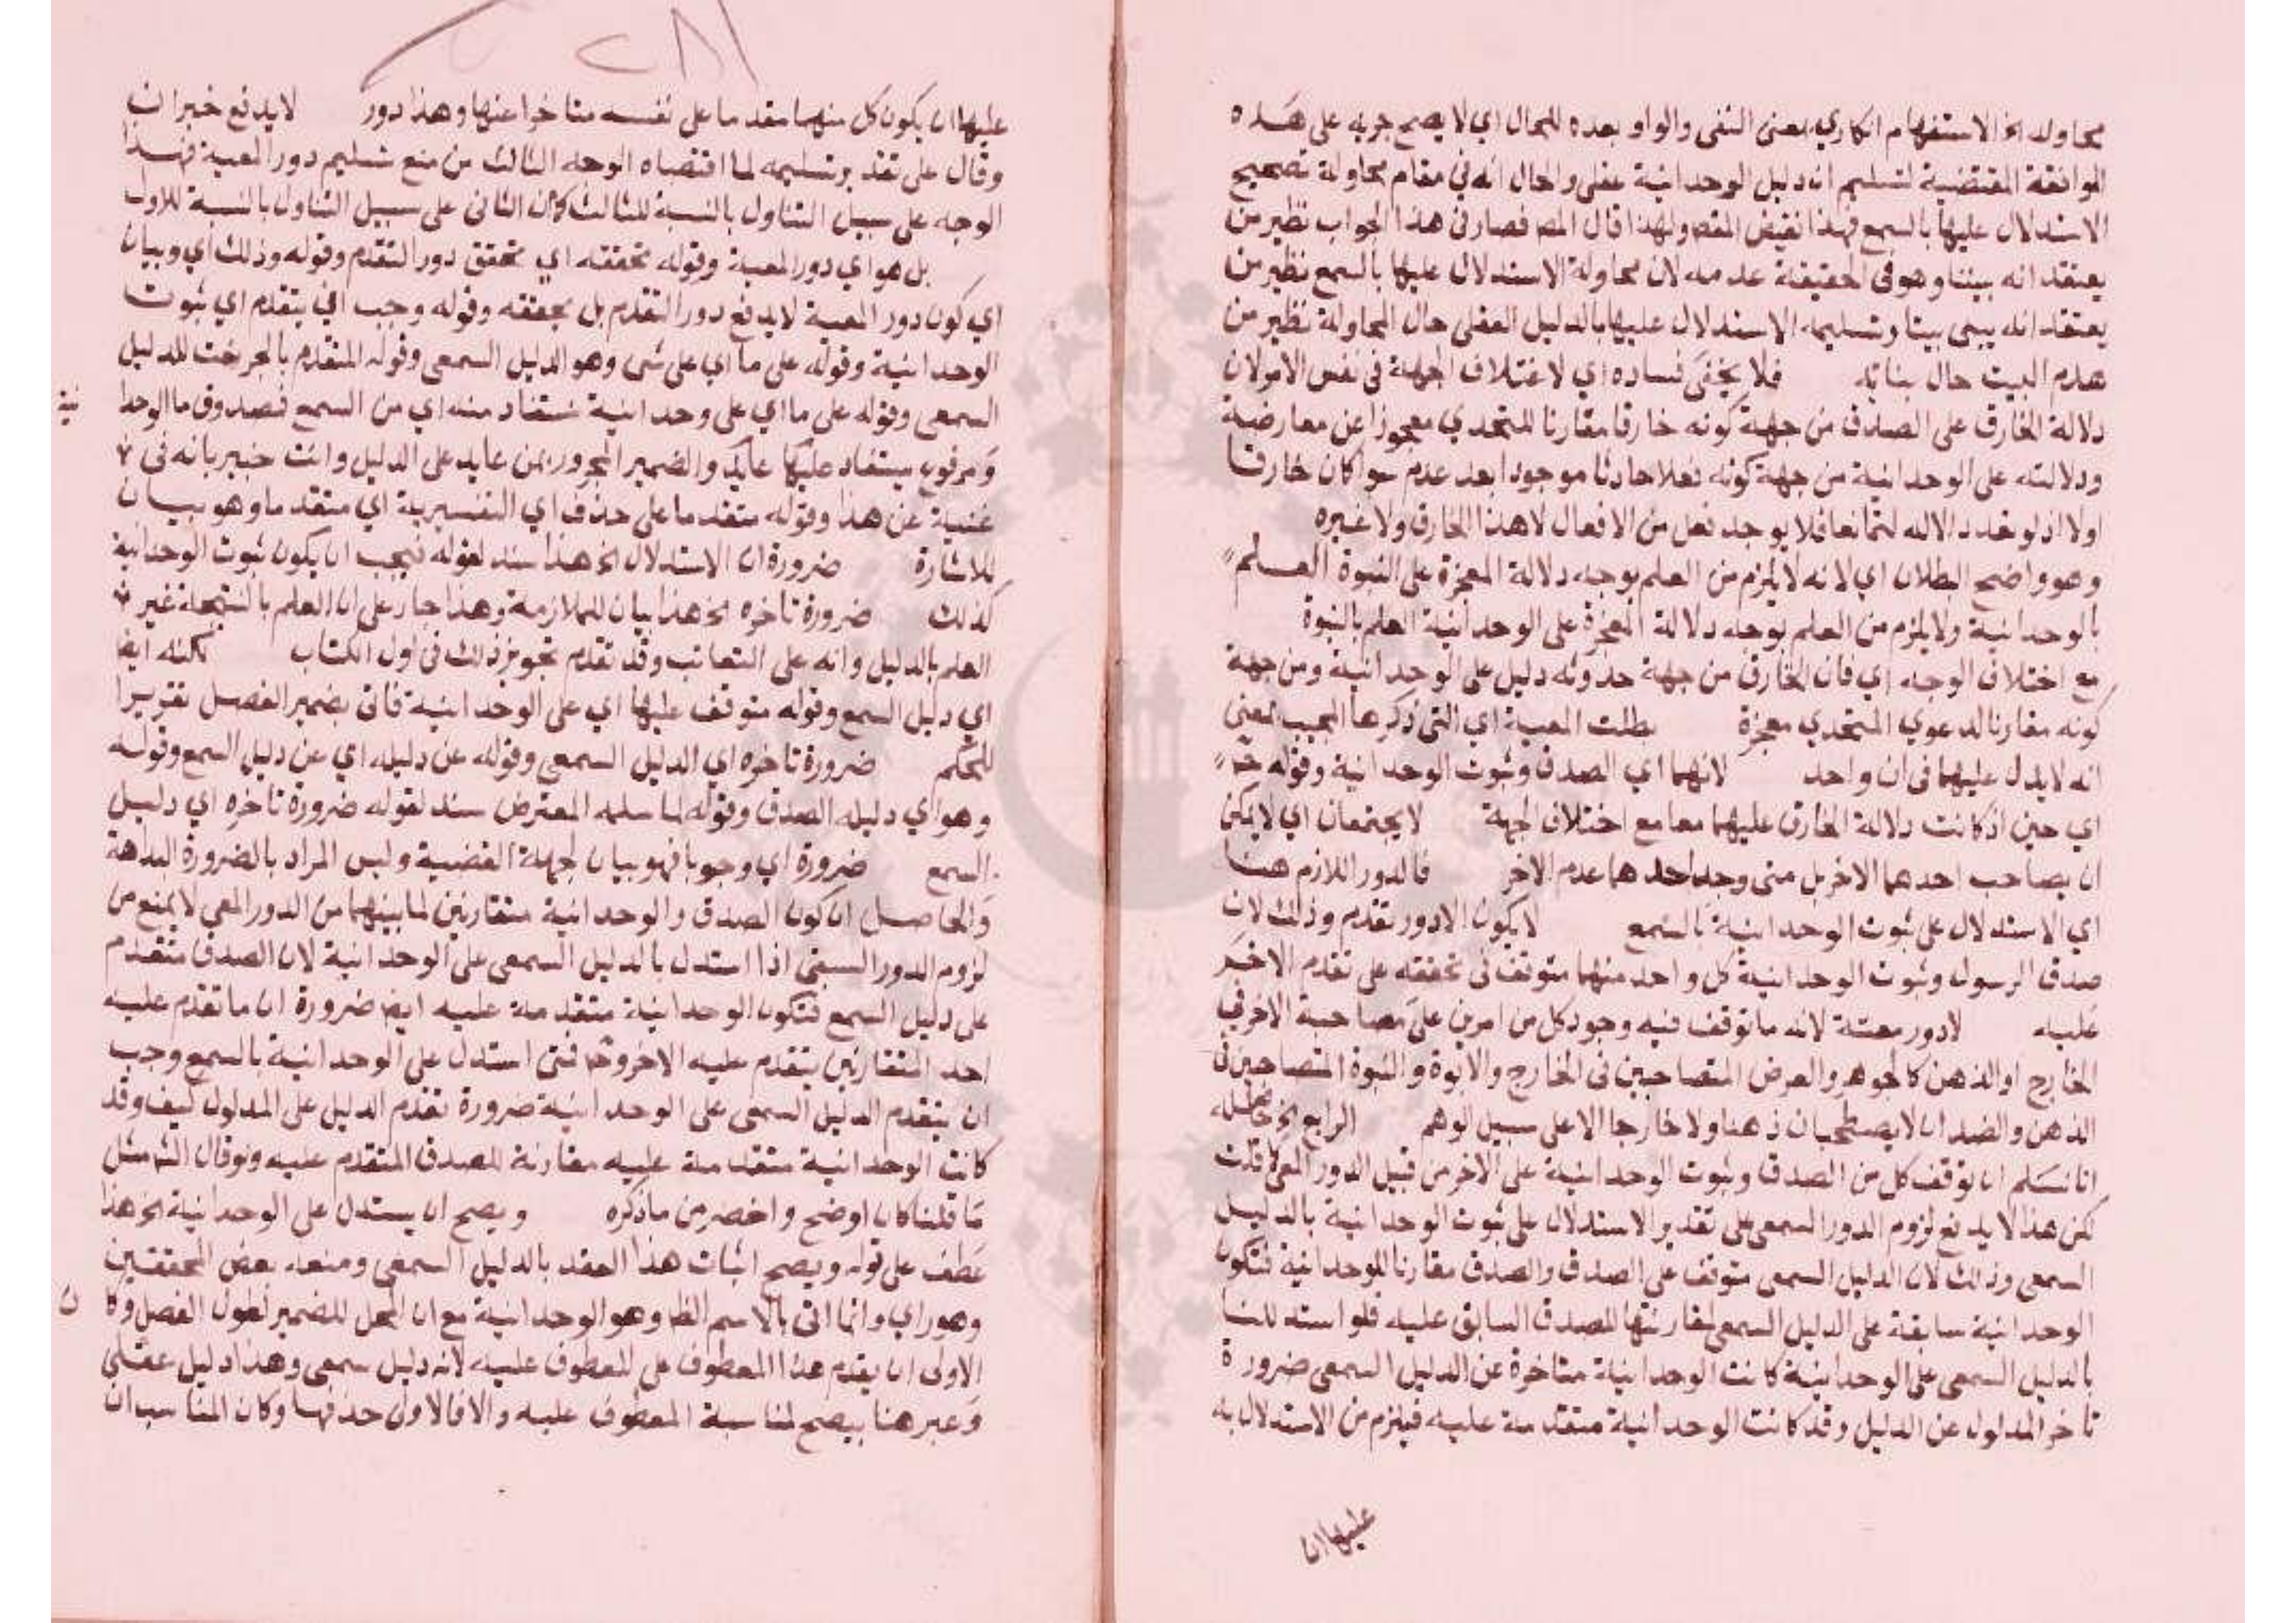 محاولة الخ الاستفهام انكاري بمعنى النفى والواو بعده للحال اي لا يصح جريه على هذه
الموافقة المقتضية لتسليم ان دليل الوحدانية عقلى والحال انه فى مقام محاولة تصحيح
الاستدلال عليها بالسمع فهذا نقيض المقص ولهذا قال المص فصار فى هذا الجواب نظير من
يعتقد انه بيتنا وهو فى الحقيقة عدمه لان محاولة الاستدلال عليها بالسمع نظير من
يعتقد انه يبنى بيتا وتسليمه الاستدلال عليها بالدليل العقلى حال المحاولة نظير من
هدم البيت حال بنائه فلا يخفى فساده اي لاختلاف الجهة فى نفس الامر لان
دلالة الخارق على الصدق من جهة كونه خارقا مقارنا للتحدي معجوزا عن معارضته
ودلالته على الوحدانية من جهة كونه فعلا حادثا موجودا بعد عدم سوا كان خارقا
اولا اذ لو تعدد الاله لتمانعا فلا يوجد فعل من الافعال لا هذا الخارق ولا غيره
وهو واضح البطلان اي لانه لا يلزم من العلم بوجه دلالة المعجزة على النبوة العلم
بالوحدانية ولا يلزم من العلم بوجه دلالة المعجزة على الوحدانية العلم بالنبوة
مع اختلاف الوجه اي فان الخارق من جهة حدوثه دليل على الوحدانية ومن جهة
كونه مقارنا لدعوي المتحدي معجزة بطلت المعية اي التى ذكرها المجيب بمعنى
انه لا يدل عليهما فى ان واحد لانهما اي الصدق وثبوت الوحدانية وقوله ح
اي حين اذ كانت دلالة الخارق عليهما معا مع اختلاف الجهة لا يجتمعان اي لا يمكن
ان يصاحب احدهما الاخر بل متى وجد احدهما عدم الاخر فالدور اللازم هنا
اي الاستدلال على ثبوت الوحدانية بالسمع لا يكون الا دور تقدم وذلك لان
صدق الرسول وثبوت الوحدانية كل واحد منهما متوقف فى تحققه على تقدم الاخر
عليه لا دور معية لانه ما توقف فيه وجود كل من امرين على مصاحبة الاخر فى
الخارج او الذهن كالجوهر والعرض المتصاحبين فى الخارج والابوة والبنوة المتصاحبين فى
الذهن والضدان لا يصطحبان ذهنا ولا خارجا الا على سبيل الوهم الرابع الخ حاصله
انا نسلم ان توقف كل من الصدق وثبوت الوحدانية على الاخر من قبيل الدور المعى كا قلت
لكن هذا لا يدفع لزوم الدور السمعى على تقدير الاستدلال على ثبوت الوحدانية بالدليل
السمعى وذلك لان الدليل السمعى متوقف على الصدق والصدق مقارنا للوحدانية فتكون
الوحدانية سابقة على الدليل السمعى لمقارنتها للصدق السابق عليه فلو استدللنا
بالدليل السمعى على الوحدانية كانت الوحدانية متاخرة عن الدليل السمعى ضرورة
تاخر المدلول عن الدليل وقد كانت الوحدانية متقدمة عليه فيلزم من الاستدلال به
عليها ان
عليها ان يكون كل منهما مقدما على نفسه متاخرا عنها وهذا دور لا يدفع خبر ان
وقال على تقدير تسليمه لما اقتضاه الوجه الثالث من منع تسليم دور المعية فهذا
الوجه على سبيل التناول بالنسبة للثالث كا ان الثانى على سبيل التناول بالنسبة للاول
بل هو اي دور المعية وقوله تحققه اي تحقق دور التقدم وقوله وذلك اي وبيان
اي كون دور المعية لا يدفع دور التقدم بل يحققه وقوله وجب اي يتقدم اي ثبوت
الوحدانية وقوله على ما اي على شى وهو الدليل السمعى وقوله المتقدم بالجر نعت للدليل
السمعى وقوله على ما اي على وحدانية تستفاد منه اي من السمع فصدوق ما الوحدا
نية
ومرفوع يستفاد عليها عايد والضمير المجرور بمن عايد على الدليل وانت خبير بانه فى
غنية عن هذا وقوله متقدما على حذف اي التفسيرية اي متقدما وهو بيان
للاشارة ضرورة ان الاستدلال الخ هذا سند لقوله فيجب ان يكون ثبوت الوحدانية
كذلك ضرورة تاخره الخ هذا بيان للملازمة وهذا جار على ان العلم بالنتيجة غير
العلم بالدليل وانه على التعاقب وقد تقدم تجويز ذلك فى اول الكتاب لكنه ايض
اي دليل السمع وقوله متوقف عليها اي على الوحدانية فاتى بضمير الفصل تقريرا
للحكم ضرورة تاخره اي الدليل السمعى وقوله عن دليله اي عن دليل السمع وقوله
وهو اي دليله الصدق وقوله لما سلمه المعترض سند لقوله ضرورة تاخره اي دليل
السمع ضرورة اي وجوبا فهو بيان لجهة القضية وليس المراد بالضرورة البداهة
والحاصل ان كون الصدق والوحدانية متقارنين لما بينهما من الدور المعى لا يمنع من
لزوم الدور السبقى اذا استدل بالدليل السمعى على الوحدانية لان الصدق متقدم
على دليل السمع فتكون الوحدانية متقدمة عليه ايض ضرورة ان ما تقدم عليه
احد المتقارنين يتقدم عليه الاخر وح فمتى استدل على الوحدانية بالسمع وجب
ان يتقدم الدليل السمعى على الوحدانية ضرورة تقدم الدليل على المدلول كيف وقد
كانت الوحدانية متقدمة عليه مقارنة للصدق المتقدم عليه ولو قال الش مثل
ما قلنا كان اوضح واخصر من ما ذكره ويصح ان يستدل على الوحدانية الخ هذا
عطف على قوله ويصح اثبات هذا العقد بالدليل السمعى ومنعه بعض المحققين
وهو راي وانما اتى بالاسم الظ وهو الوحدانية مع ان المحل للضمير لطول الفصل وكا
ن
الاولى ان يقدم هذا المعطوف على المعطوف عليه لانه دليل سمعى وهذا دليل عقلى
وعبر هنا بيصح لمناسبة المعطوف عليه والا فالاولى حذفها وكان المناسب ان